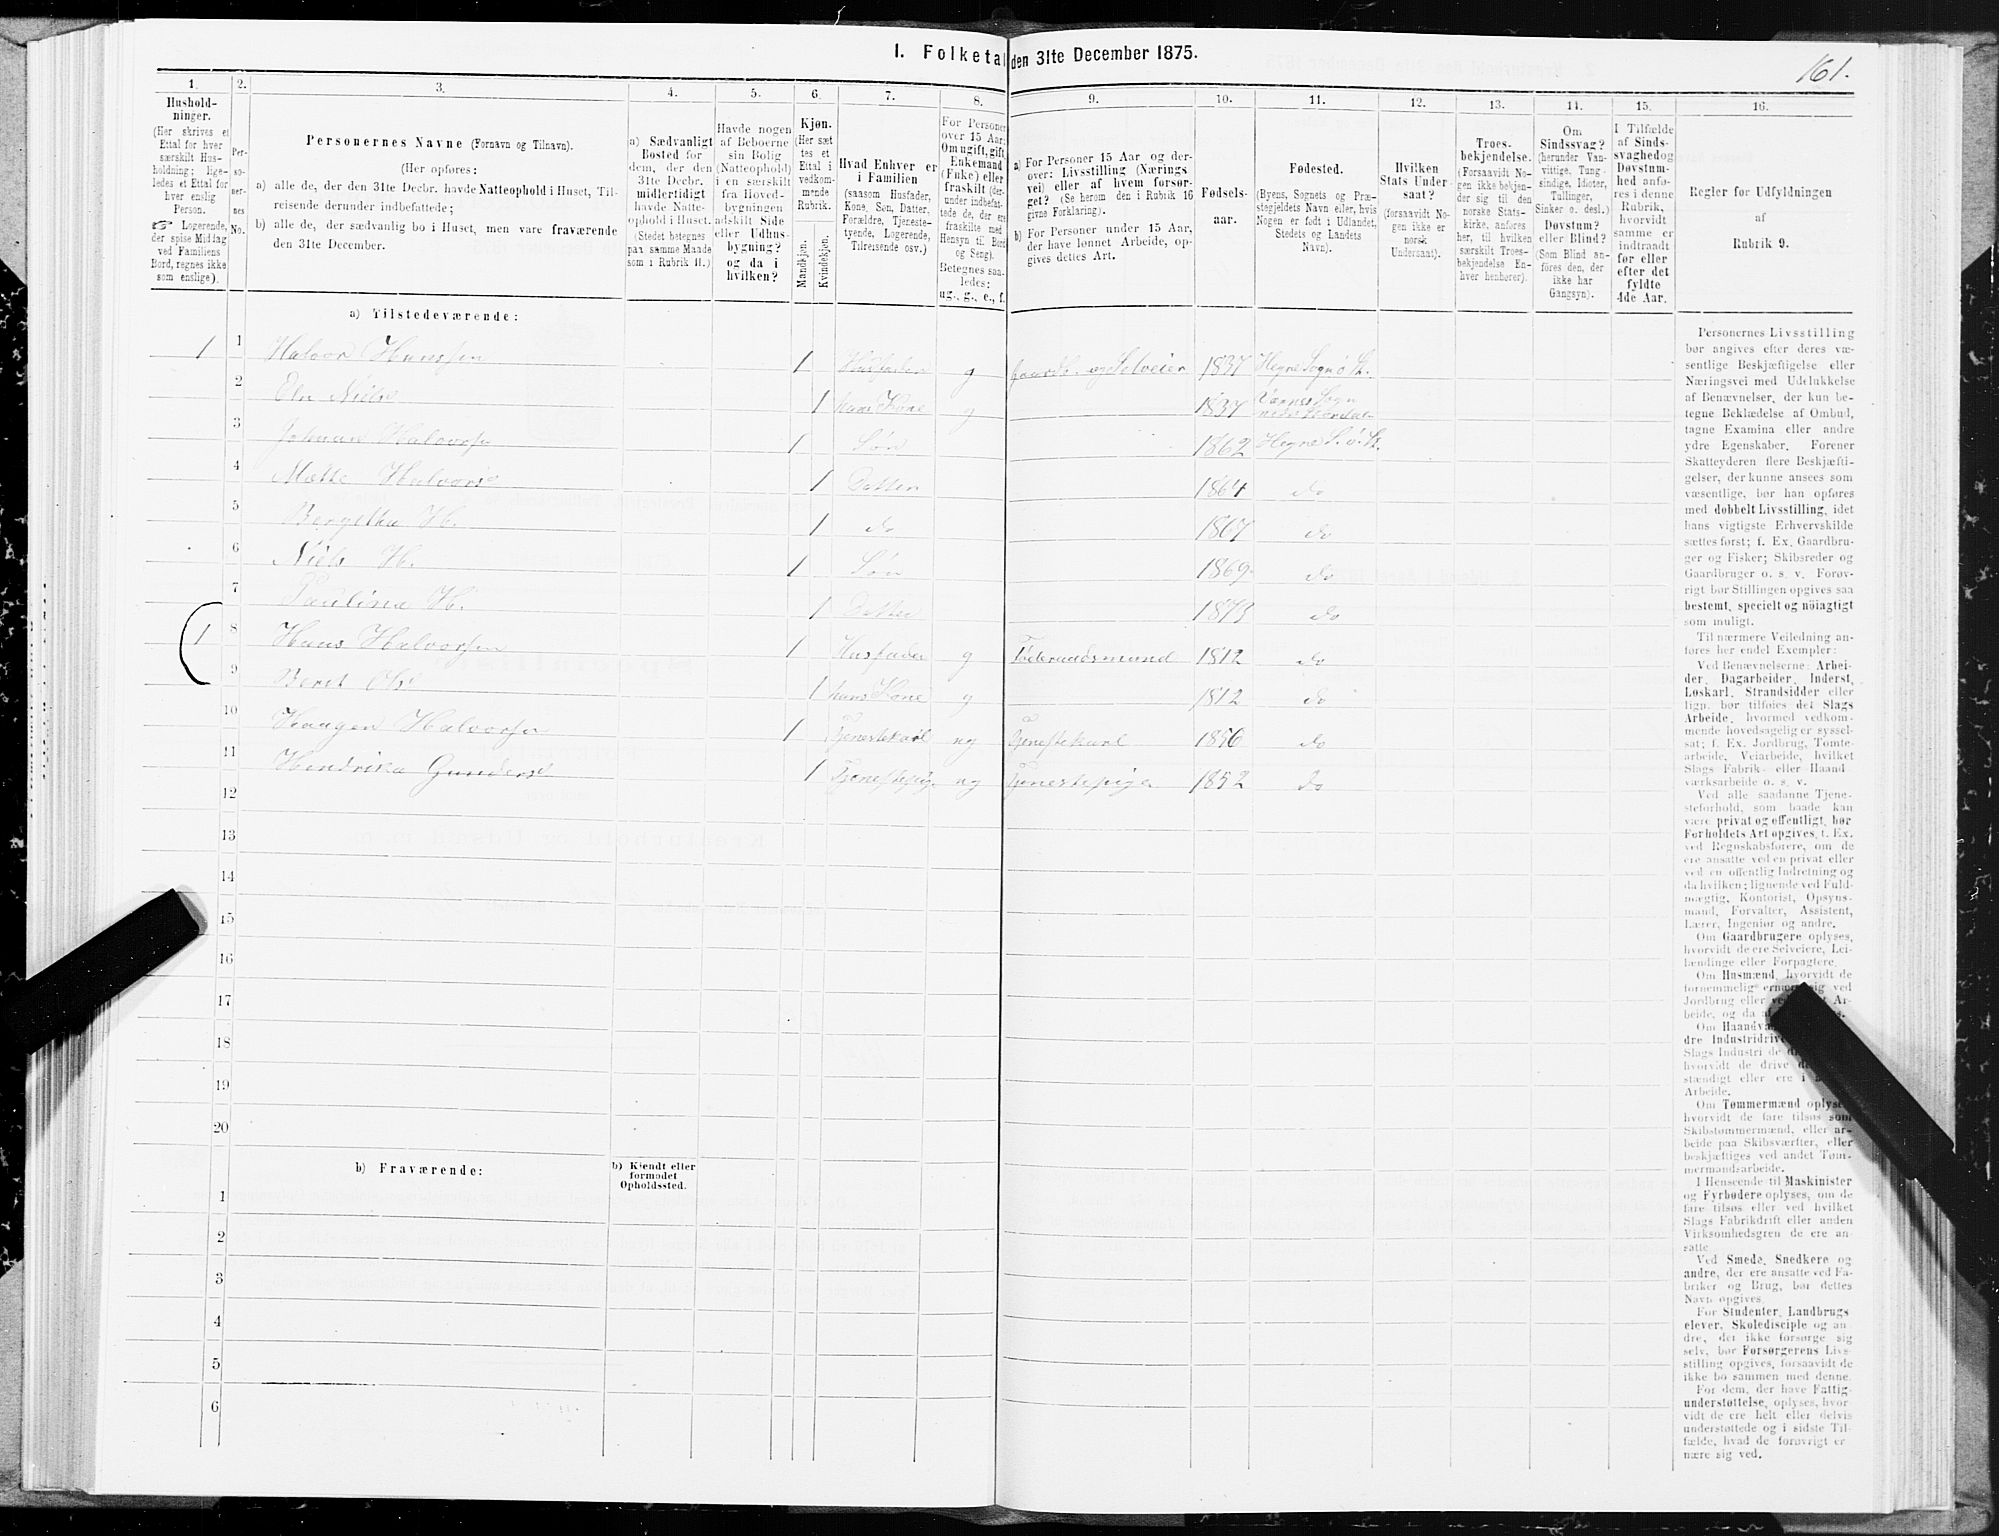 161.
I. Folketal den 31te December 1875.
1.
Hushold-
ninger.
(Her skrives et
Ettal for hver
særskilt Hus-
holdning; lige-
ledes et Ettal for
hver enslig
Person.
☞ Logerende,
der spise Middag
ved Familiens
Bord, regnes ikke
som enslige).
2.
Per-
so-
ner-
nes
No.
3.
Personernes Navne (Fornavn og Tilnavn).
(Her opføres:
a) alle de, der den 31te Decbr. havde Natteophold i Huset, Til-
reisende derunder indbefattede;
b) alle de, der sædvanlig bo i Huset, men vare fraværende
den 31te December.
4.
a) Sædvanligt
Bosted for
dem, der den
31te Decbr.
midlertidigt
havde Natte-
ophold i Huset.
(Stedet betegnes
paa samme Maade
som i Rubrik 11.)
5.
Havde nogen
af Beboerne
sin Bolig
(Natteophold)
i en særskilt
fra Hoved-
bygningen
adskilt Side
eller Udhus-
bygning?
og da i
hvilken?
6.
Kjøn.
(Her sæt
tes et
Ettal i
vedkom-
mende
Rubrik.
Mandkjøn.
Kvindekjøn.
7.
Hvad Enhver er
i Familien
(saasom Husfader,
Kone, Søn, Datter,
Forældre, Tjeneste-
tyende, Logerende,
Tilreisende osv.)
8.
For Personer
over 15 Aar:
Om ugift, gift,
Enkemand
(Enke) eller
fraskilt (der-
under indbefat-
tede de, der ere
fraskilte med
Hensyn til Bord
og Seng).
Betegnes saa-
ledes:
ug., g., e., f.
9.
a) For Personer 15 Aar og der-
over: Livsstilling (Nærings
vei) eller af hvem forsør-
get? (Se herom den i Rubrik 16
givne Forklaring).
b) For Personer under 15 Aar,
der have lønnet Arbeide, op-
gives dettes Art.
10.
Fødsels-
aar.
11.
Fødested.
(Byens, Sognets og Præ-
stegjeldets Navn eller, hvis
Nogen er født i Udlandet,
Stedets og Landets
Navn).
12.
Hvilken
Stats Under-
saat?
(forsaavidt No-
gen ikke er
norsk
Undersaat).
13.
Troes-
bekjendelse.
(Forsaavidt No-
gen ikke bekjen-
der sig til den
norske Stats-
kirke, anføres
her, til hvilken
særskilt Troes-
bekjendelse En-
hver henhører).
14.
Om
Sindssvag?
(herunder Van-
vittige, Tung-
sindige, Idioter,
Tullinger,
Sinker o. desl.)
Døvstum?
eller Blind?
(Som Blind an-
føres den, der
ikke har
Gangsyn).
15.
I Tilfælde
af Sinds-
svaghed og
Døvstum-
hed anfø-
res i denne
Rubrik,
hvorvidt
samme er
indtraadt
før eller
efter det
fyldte
4de Aar.
16.
Regler for Udfyldningen
af
Rubrik 9.
a) Tilstedeværende:
1 1 Halvor Hanssen 1 Husfader g Gaardb. og Selveier 1837 Hegne Sogn ø St.
2 Eln Niels 1 hans Kone g 1837 Værnes Sogn nedr Stördalen
3 Johnan Halvorsn 1 Søn 1862 Hegne S. ø. St.
4 Mætte Halvors 1 Datter 1864 do
5 Bergitha H. 1 do 1867 do
6 Niels H. 1 Søn 1869 do
7 Paulina H. 1 Datter 1873 do
1 8 Hans Halvorsen 1 Husfader g Föderaadsmand 1812 do
9 Berit Ols 1 hans Kone g 1812 do
10 Haagen Halvorsen 1 Tjenestekarl ug Tjenestekarl 1856 do
11 Hendrika Gunders 1 Tjenestepig. ug Tjenestepige 1852 do
12
13
14
15
16
17
18
19
20
b) Fraværende:
b) Kjendt eller
formodet
Opholdssted.
1
2
3
4
5
6
Personernes Livsstilling
bør angives efter deres væ-
sentlige Beskjæftigelse eller
Næringsvei med Udelukkelse
af Benævnelser, der kun be-
tegne Beklædelse af Ombud,
tagne Examina eller andre
ydre Egenskaber. Forener
Skatteyderen flere Beskjæfti-
gelser, der kunne ansees som
væsentlige, bør han opføres
med dobbelt Livsstilling, idet
hans vigtigste Erhvervskilde
sættes først; f. Ex. Gaardbru-
ger og Fisker; Skibsreder og
Gaardbruger o. s. v. Forøv-
rigt bør Stillingen opgives saa
bestemt, specielt og nöiagtigt
som muligt.
Til nærmere Veiledning an-
føres her endel Exempler:
Ved Benævnelserne: Arbei-
der, Dagarbeider, Inderst,
Løskarl, Strandsidder eller
lign. bør tilføies det Slags
Arbeide, hvormed vedkom-
mende hovedsagelig er syssel-
sat; f. Ex. Jordbrug, Tomte-
arbeide, Veiarbeide, hvilket
Slags Fabrik- eller Haand-
værksarbeide o. s. v.
Ved alle saadanne Tjene-
steforhold, som baade kan
være privat og offentligt, bør
Forholdets Art opgives, t. Ex.
ved Regnskabsførere, om de
ere ansatte ved en privat eller
ved en offentlig Indretning og
da hvilken; lignende ved Fuld-
mægtig, Kontorist, Opsyns-
mand, Forvalter, Assistent,
Lærer, Ingeniør og andre.
Om Gaardbrugere oplyses,
hvorvidt de ere Selveiere, Lei-
lændinge eller Forpagtere.
Om Husmænd, hvorvidt de
fornemmelig ernære sig ved
Jordbrug eller ved Ar-
beide, og da af
Om Haandv
dre Industridriv
Slags Industri de
hvorvidt de drive
stændigt eller ere i
Arbeide.
Om Tømmermænd oplyse
hvorvidt de fare tilsøs som
Skibstømmermænd, eller ar-
beide paa Skibsværfter, eller
beskjæftiges ved andet Tøm-
mermandsarbeide.
I Henseende til Maskinister
og Fyrbødere oplyses, om de
fare tilsøs eller ved hvilket
Slags Fabrikdrift eller anden
Virksomhedsgren de ere an-
satte.
Ved Smede, Snedkere og
andre, der ere ansatte ved Fa-
briker og Brug, bør dettes
Navn opgives.
For Studenter, Landbrugs
elever, Skoledisciple og an
dre, der ikke forsørge sig
selv, bør Forsørgerens Livs-
stilling opgives, forsaavidt de
ikke bo sammen med denne.
For dem, der have Fattig-
understøttelse, oplyses, hvor-
vidt de ere helt eller delvis
understøttede og i sidste Til-
fælde, hvad de forøvrigt er
nære sig ved.